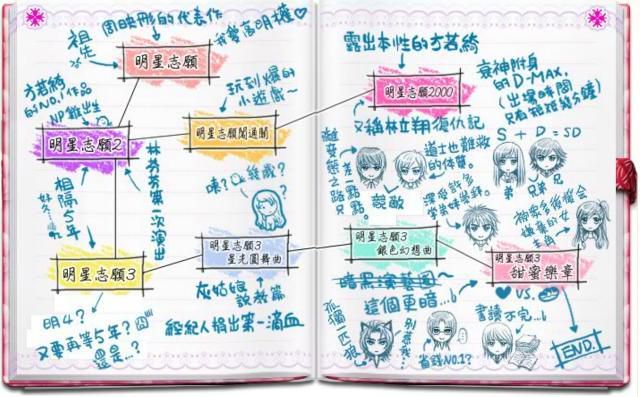 周映彤的代表作
祖先
我要高明權♡
明星志願
方若綺
的NO.1作品
NP難出生
玩到爆的
小遊戲~
明星志願2
明星志願鬧通關
林芬芬第一次演出
相隔5年
好久…
咦?
幾歲??
明星志願3
明星志願3
星光圓舞曲
灰姑娘
說教篇
明4?
又要再等5年?
還是…?
經紀人揹出第一滴血
露出本性的方若綺
明星志願2000
衰神附身
的D-MAX,
(出場時間
只有短短幾分鐘)
又稱林立翔復仇記
S + D = SD
離變態之路
差一點點點
道士也難救
的體質。
競敵
弟 兄弟 兄
深受許多
學弟妹愛戴。
被眾多後後會
嫌棄的女
主角
明星志願3
銀色幻想曲
明星志願3
甜蜜樂章
暗黑演藝圈
這個更暗…
♥ VS.
書讀不完…
孤獨一匹狼
別惹我…
省錢NO.1?
END.